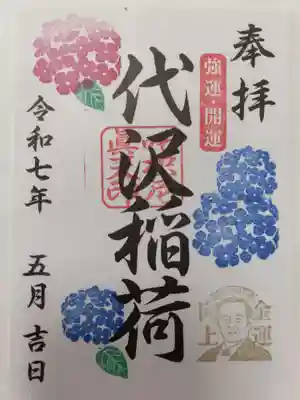 奉拝
強運・開運
代沢稲荷
令和七年 五月吉日
金運
上